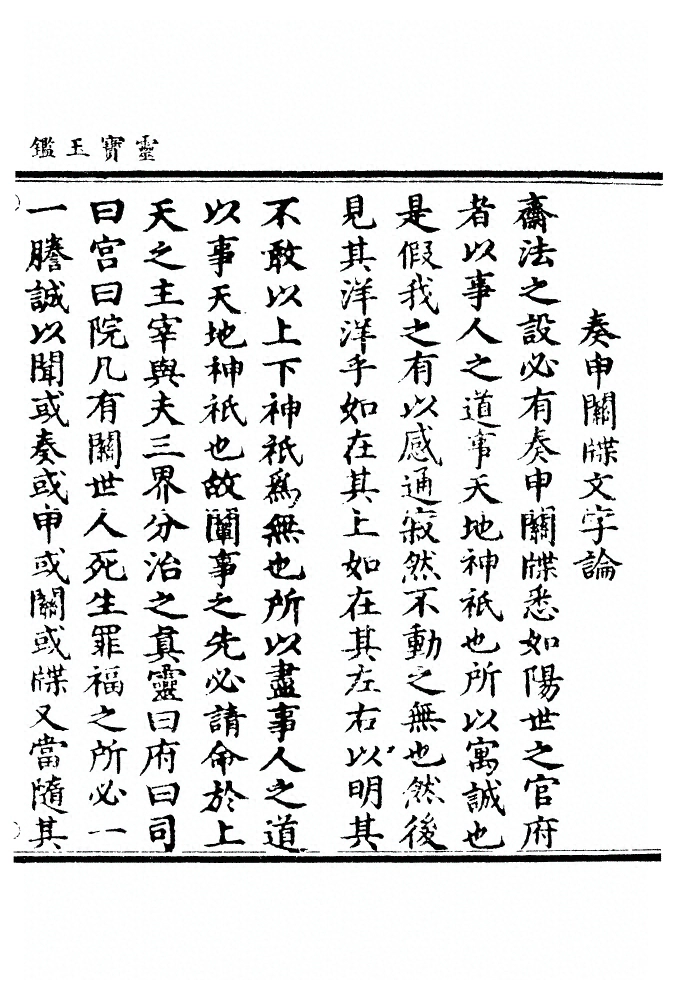 靈寳玉鑑
奏申關牒文字論
齋法之設必有奏申關牒悉如陽世之官府
者以事人之道事天地神祇也所以寓誠也
是假我之有以感通寂然不動之無也然後
見其洋洋乎如在其上如在其左右以明其
不敢以上下神祇爲無也所以盡事人之道
以事天地神祇也故闡事之先必請命於上
天之主宰與夫三界分治之真靈曰府曰司
曰宫曰院凡有關世人死生罪福之所必一
一謄誠以聞或奏或申或關或牒又當隨其